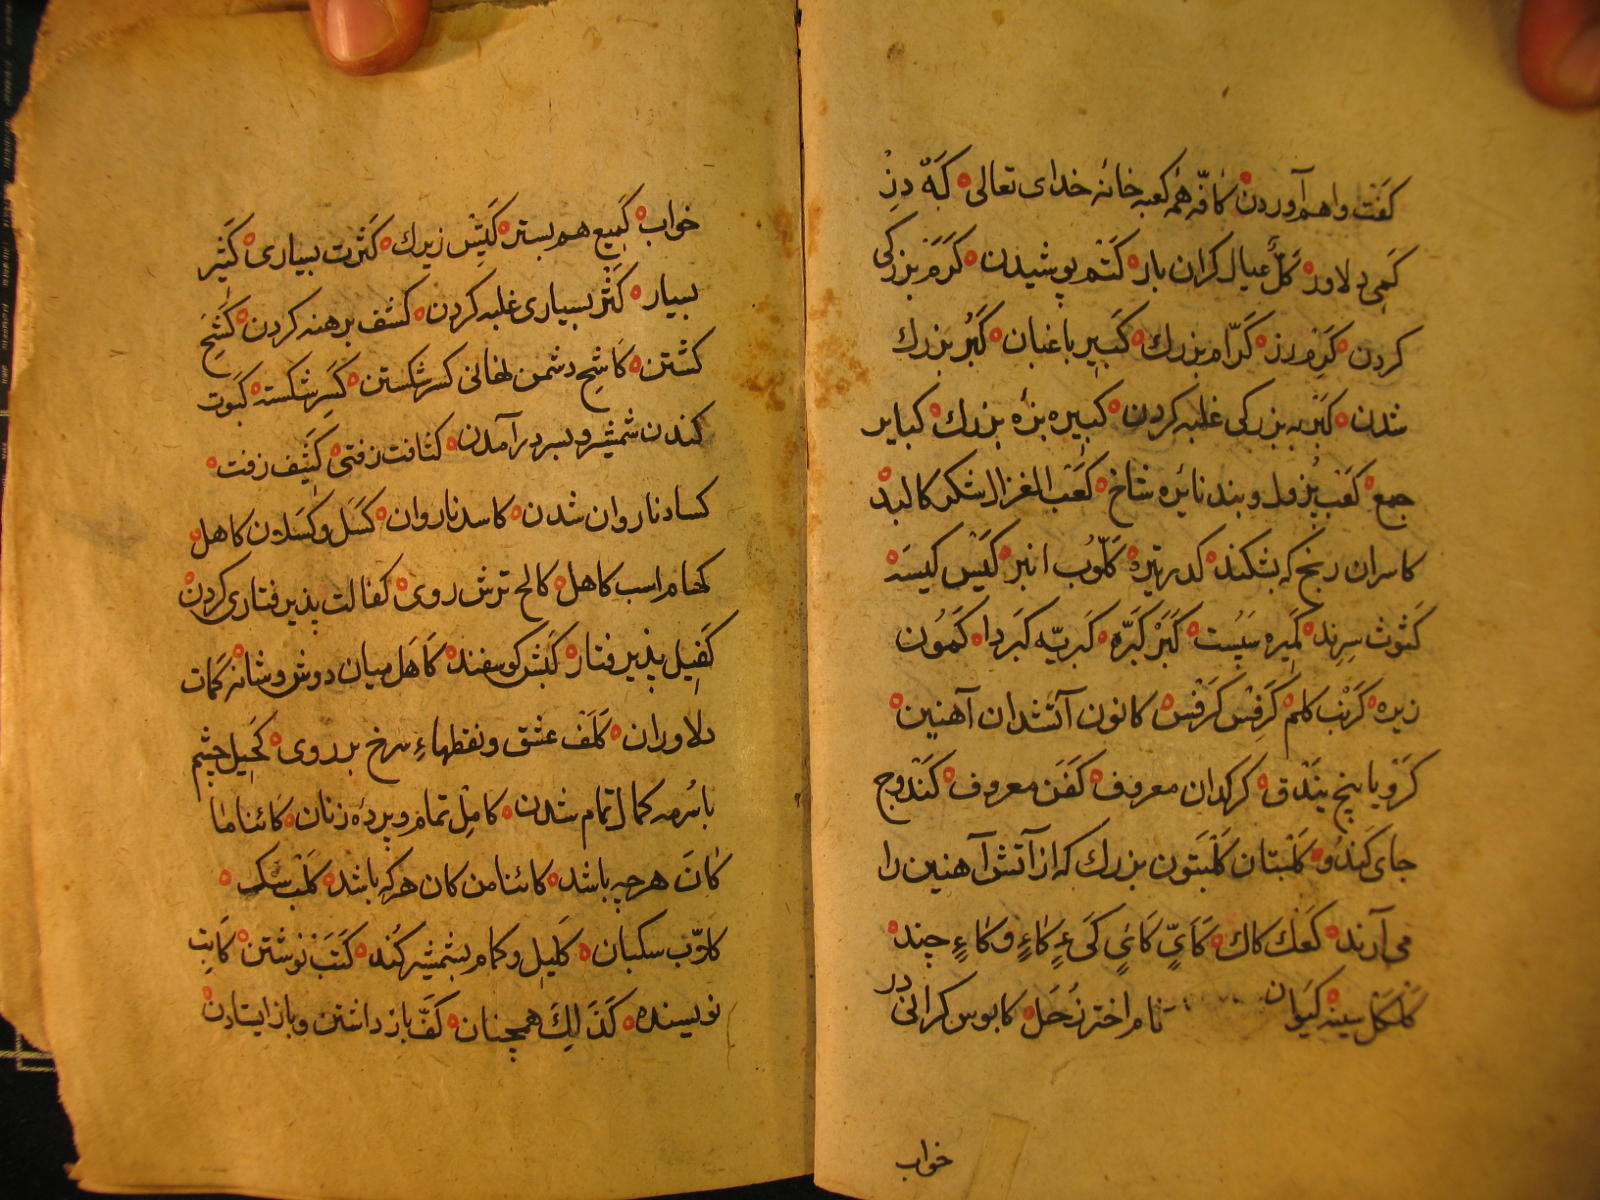 كَفْت واهم آوردن كافّه همه كعبه خانه خدای تعالی كبّه دز
كمی دلاور كَلّ عیال كران بار كتم پوشیدن كَرَمْ بزركی
كردن كرم رز كرّام بزرك كبیر باغبان كُبْر بزرك
شدن كبریه بزركی غلبه كردن كبیره بزه بزرك كبایر
جمع كعب پژول و بند نایزه شاخ كعب الغزال شكر كالبد
كاسران رنج كه بشكند كدر تیره كَلّوب انبر كَیْس كیسه
كثوث سرند سَبُست كَبَرْ كَبَرّه كبریّه كبردا كمّون
زیره كَرَنْب كلم كَرَفْس كرفس كانون آتشدان آهنین
كَرْویا بیخ بَنْدَق كركدان معروف كَفَن معروف كَنْدوج
جای كَندُو كَلْبتان كَلْبَتون بزرك كه از آتش آهنین را
می آرند كَعْك كاك كَایٍّ كَایٍ كیءٍ كاءٍ وكاءٍ چند
كَلْكَل سینه كیوان نام اختر زُحَل كابوس كرانی در
خواب
خواب كمیع هم بستر كَیّس زیرك كَثْرت بسیاری كثیر
بسیار كَثْر بسیاری غلبه كردن كشف برهنه كردن كَشْح
كشتن كاشح دشمن نهانی كسر شكستن كسر شكسته كبوت
كندن شمشیر و بسر درآمدن كثافت زفتی كثیف زفت
كساد ناروان شدن كاسد ناروان كَسَل وكَسلان كاهل
كهام اسب كاهل كالح ترش روی كفالت پذیرفتاری كردن
كَفیل پذیرفتار كبش كوسفند كاهل میان دوش و شانه كمات
دلاوران كَلَف عشق و نقطهاءِ سرخ بر روی كحیل چشم
با سرمه كمال تمام شدن كامِل تمام و پرده زنان كائنا ما
كان هرچه باشد كائنا من كان هركه باشد كلب سك
كلاّب سكبان كلیل و كهام شمشیر كُند كَتْبْ نوشتن كاتِب
نویسنده كَذلِكَ همچنان كَفّ باز داشتن و باز ایستادن